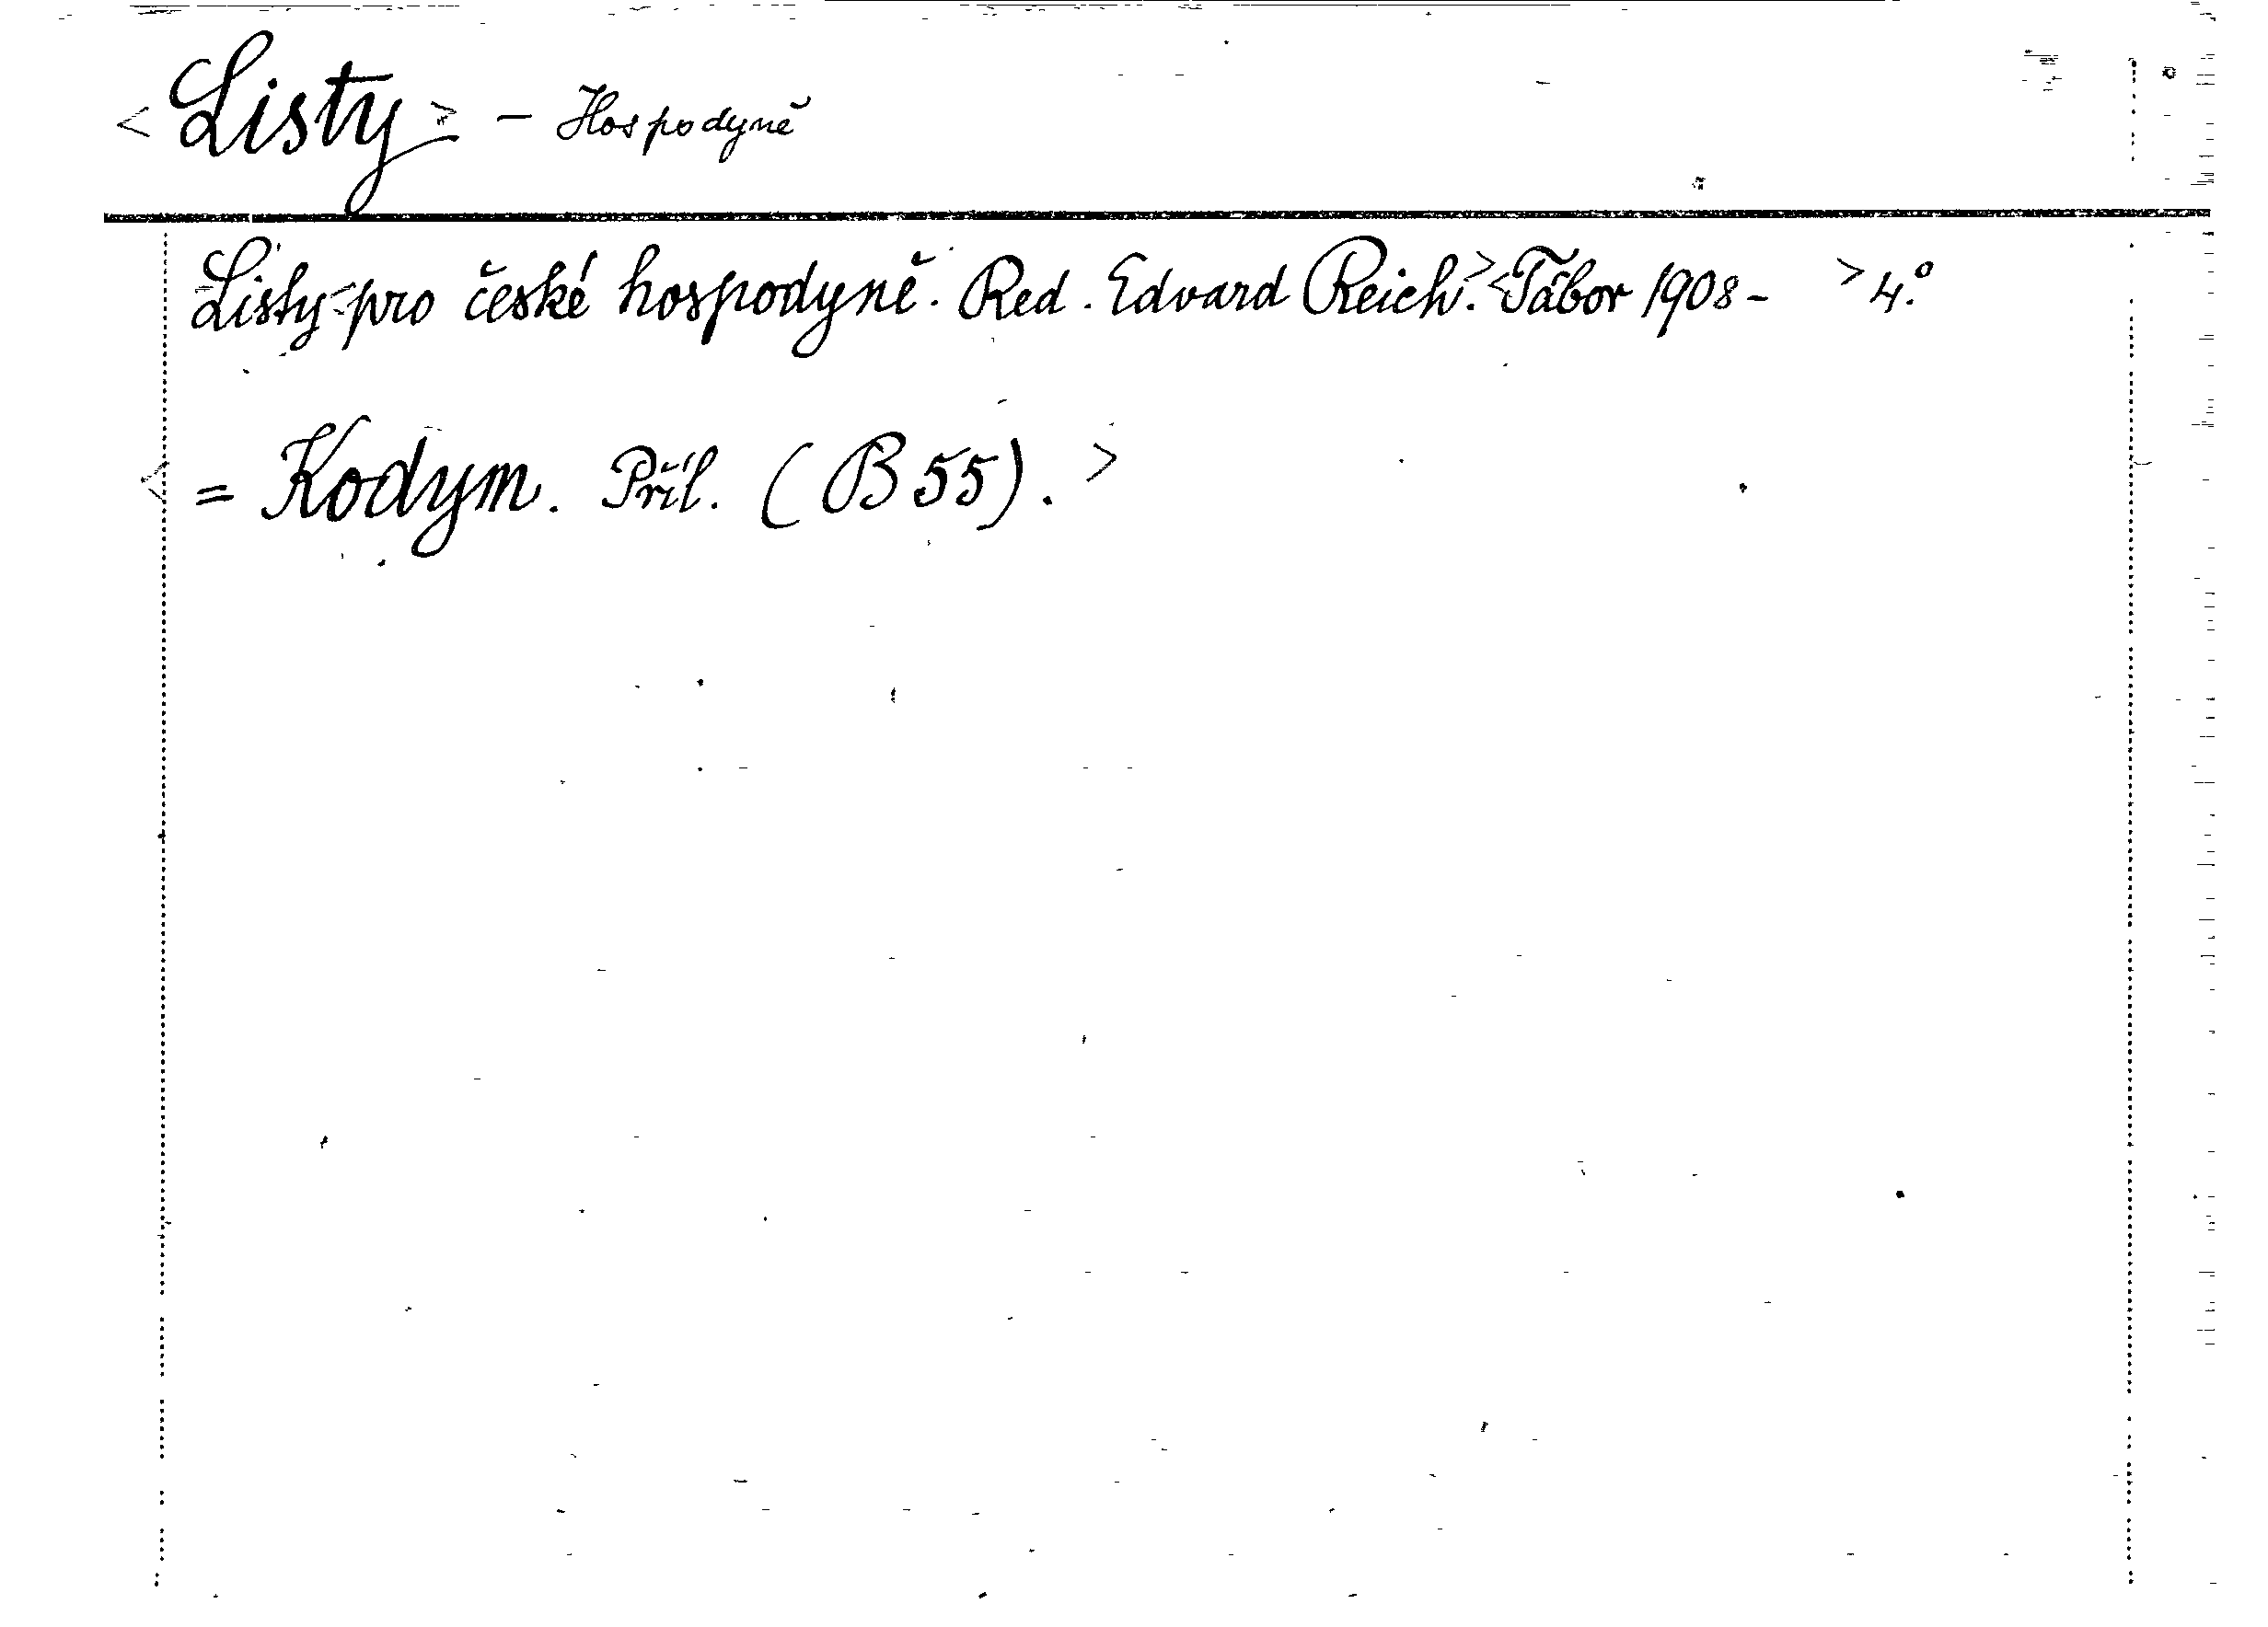 <Listy> – Hospodyně
Listy <pro české hospodyně. Red. Edvard Reich.> <Tábor 1908 - > 4.°
< = Kodym. Příl. (B 55). >